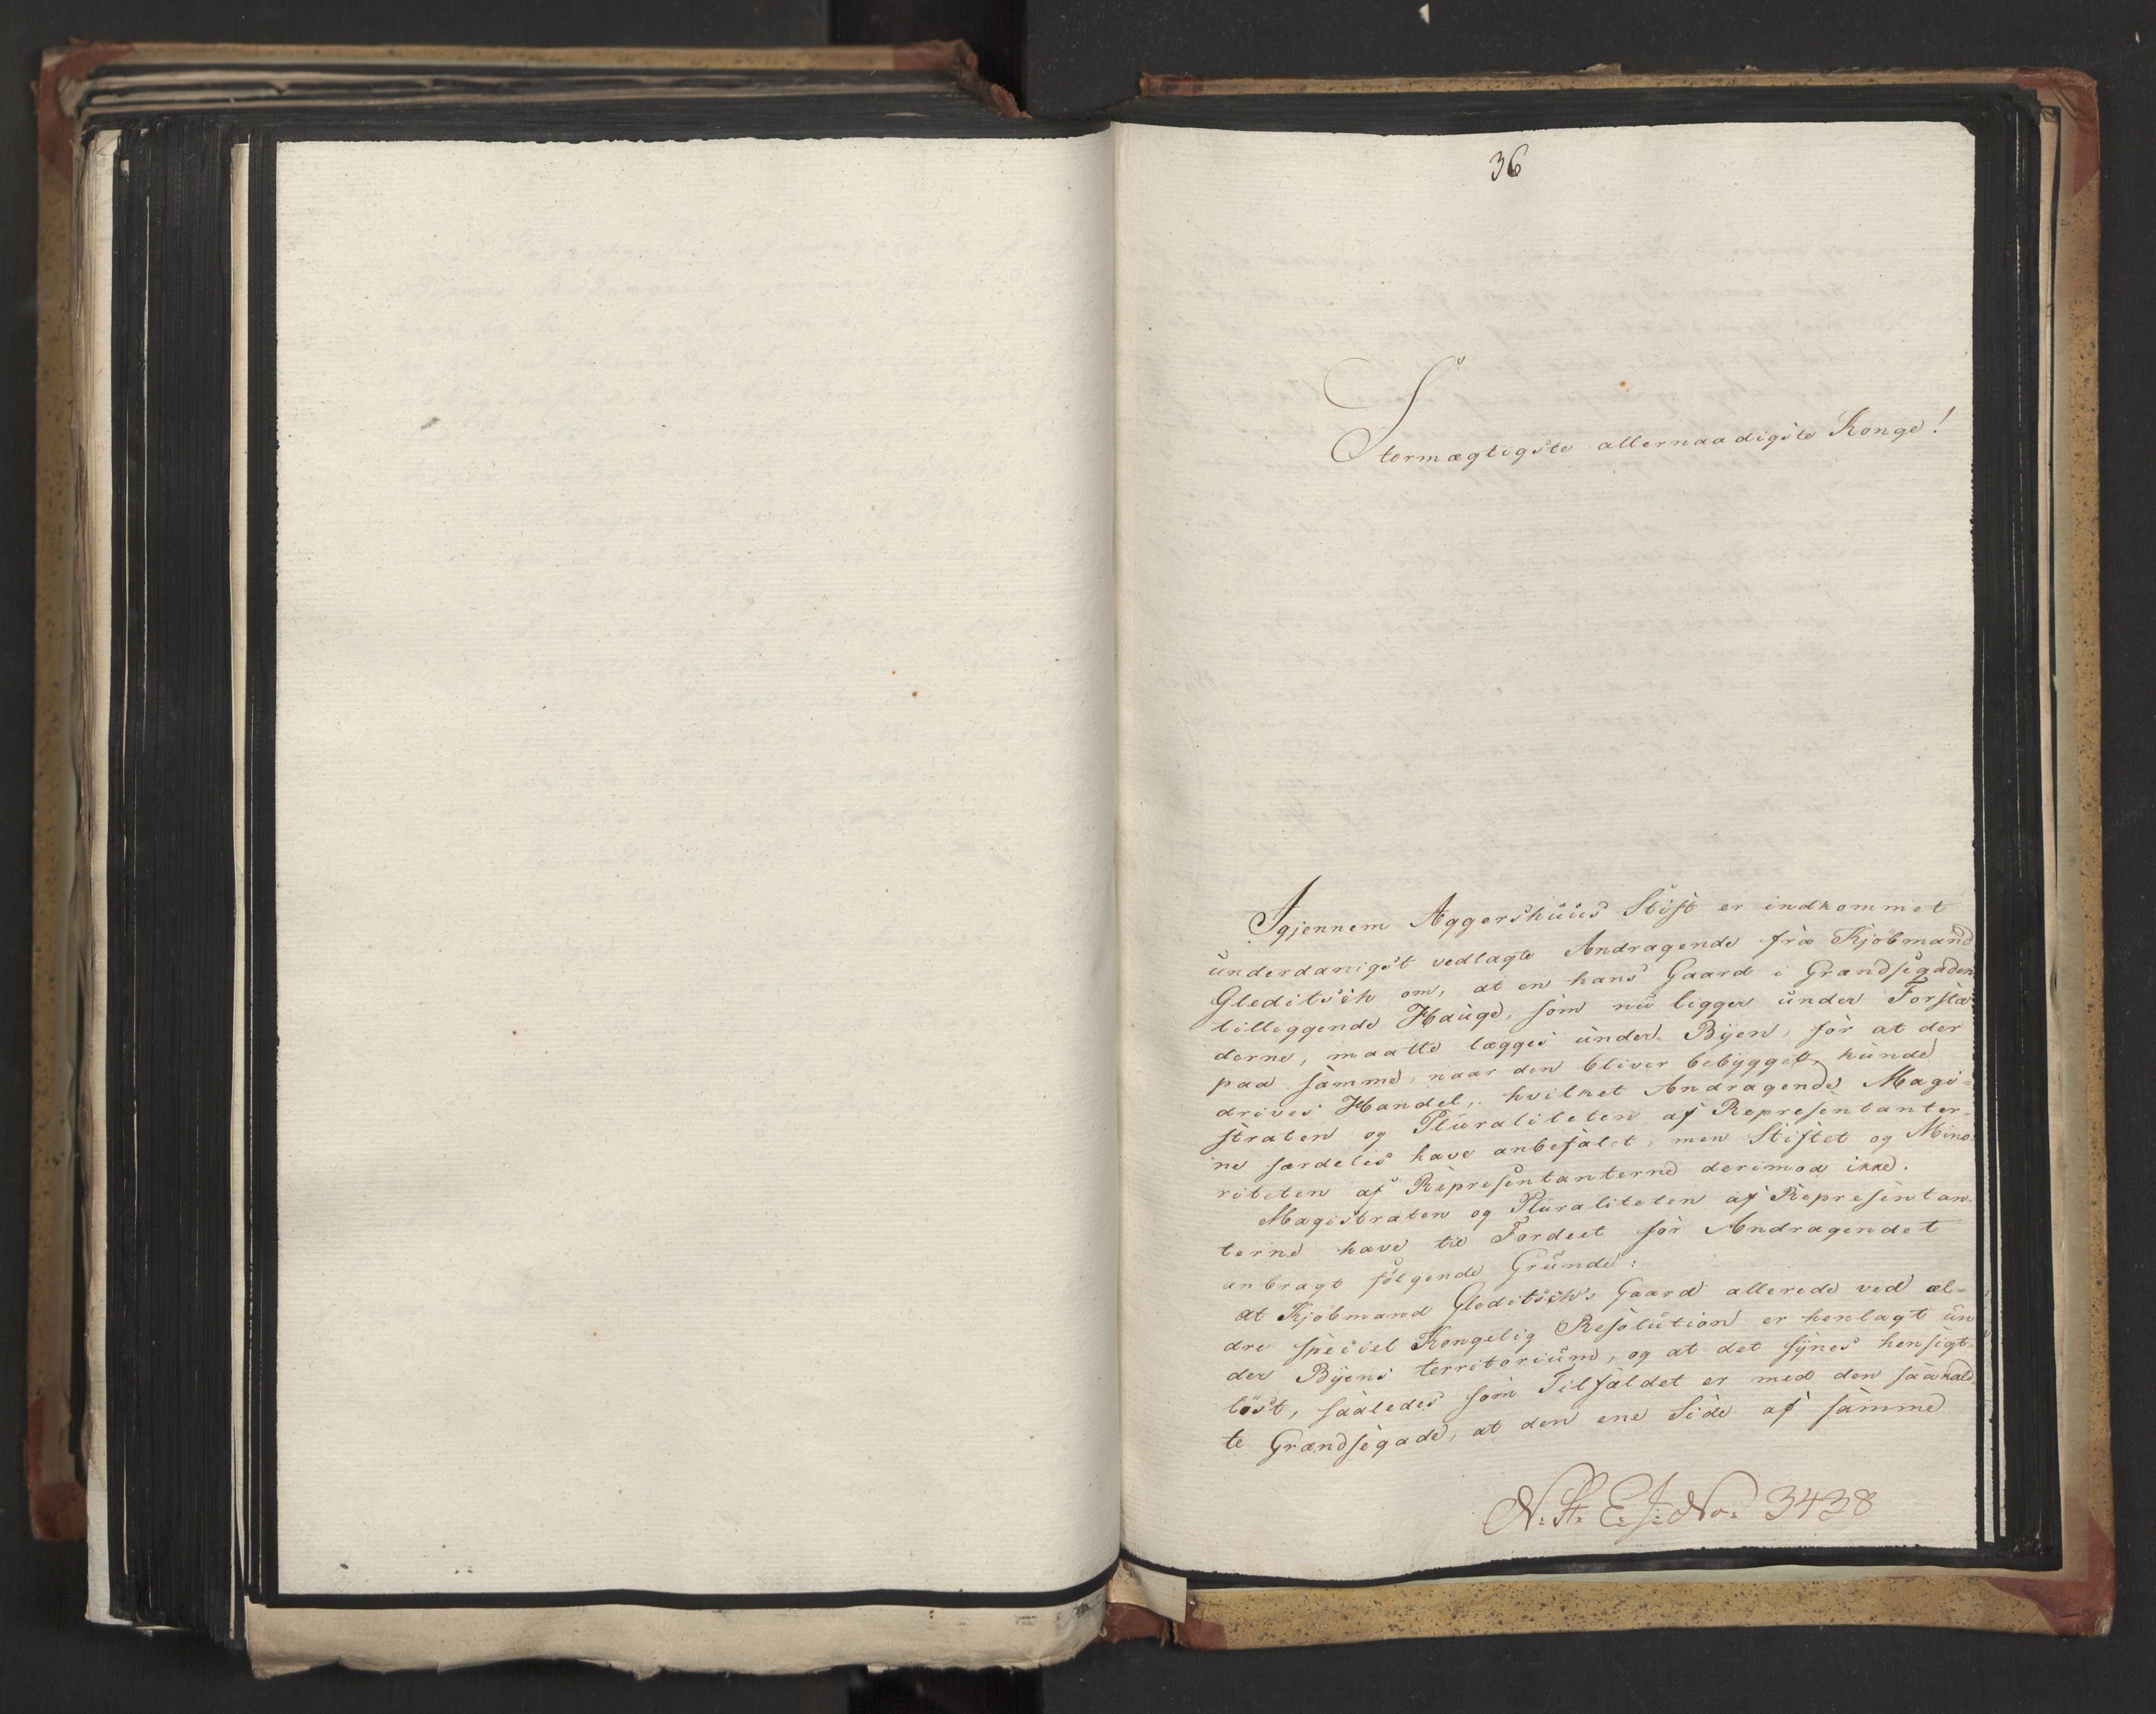 36
Stormægtigste allernaadigste Konge!
Igjennem Aggershuus Stift er indkommet
underdanigst vedlagte Andragende fra Kjøbmand
Gleditsch om, at en hans Gaard i Grændsegaden
tilliggende Hauge, som nu ligger under Forstæ-
derne, maatte lægges under Byen, for at der
paa samme, naar den bliver bebygget, kunde
drives Handel, hvilket Andragende Magi-
straten og Pluraliteten af Representanter-
ne særdeles have anbefalet, men Stiftet og Mino-
riteten af Representanterne derimod ikke.
Magistraten og Pluraliteten af Representan-
terne have til Fordeel for Andragendet
anbragt følgende Grunde:
at Kjøbmand Gleditsch's Gaard allerede ved æl-
dre speciel Kongelig Resolution er henlagt un
der Byens territorium, og at det synes hensigt-
løst, saaledes som Tilfældet er med den saakald-
te Grændsegade, at den ene Side af samme
N: St: E: J: No: 3438